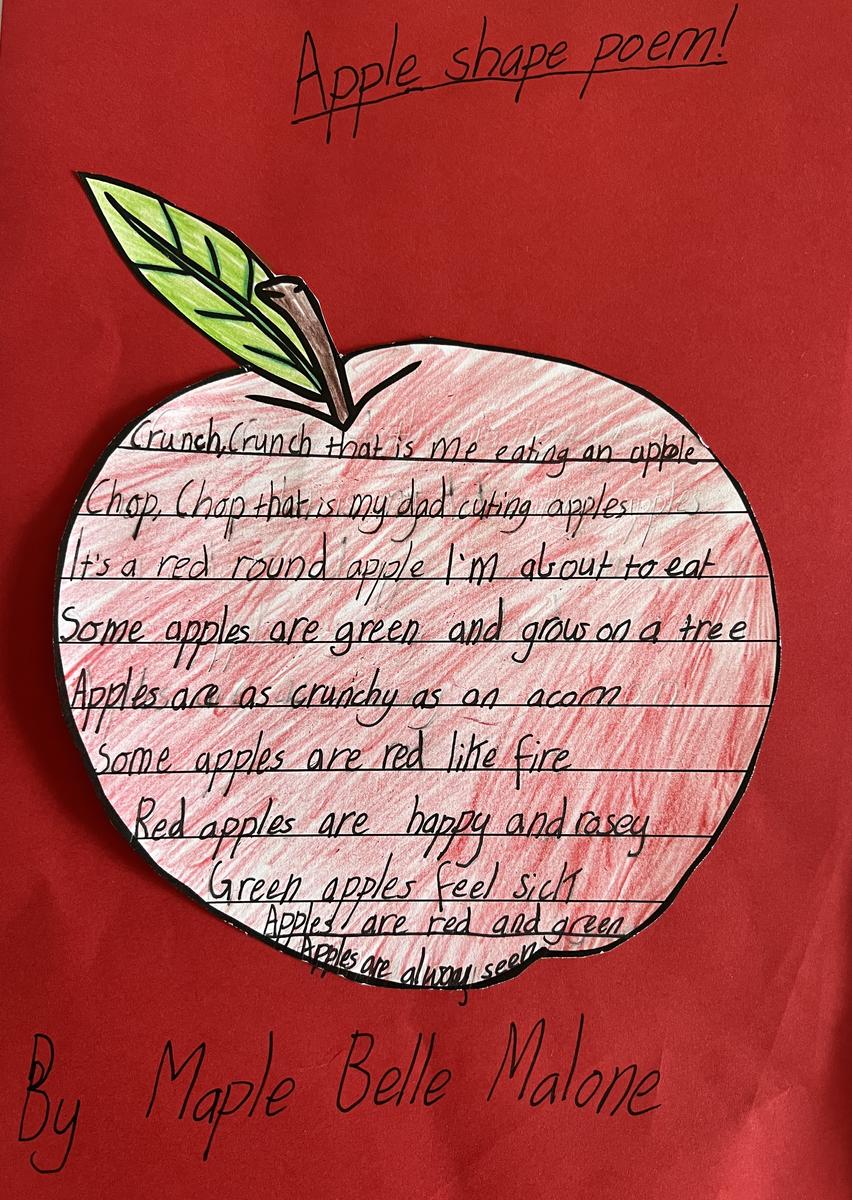 Apple shape poem!
Crunch, Crunch that is me eating an apple
Chop, Chop that is my dad cuting apples
It's a red round apple I'm about to eat
Some apples are green and grow on a tree
Apples are as crunchy as an acorn
Some apples are red like fire
Red apples are happy and rosey
Green apples feel sick
Apples are red and green
Apples are alway seen
By Maple Belle Malone